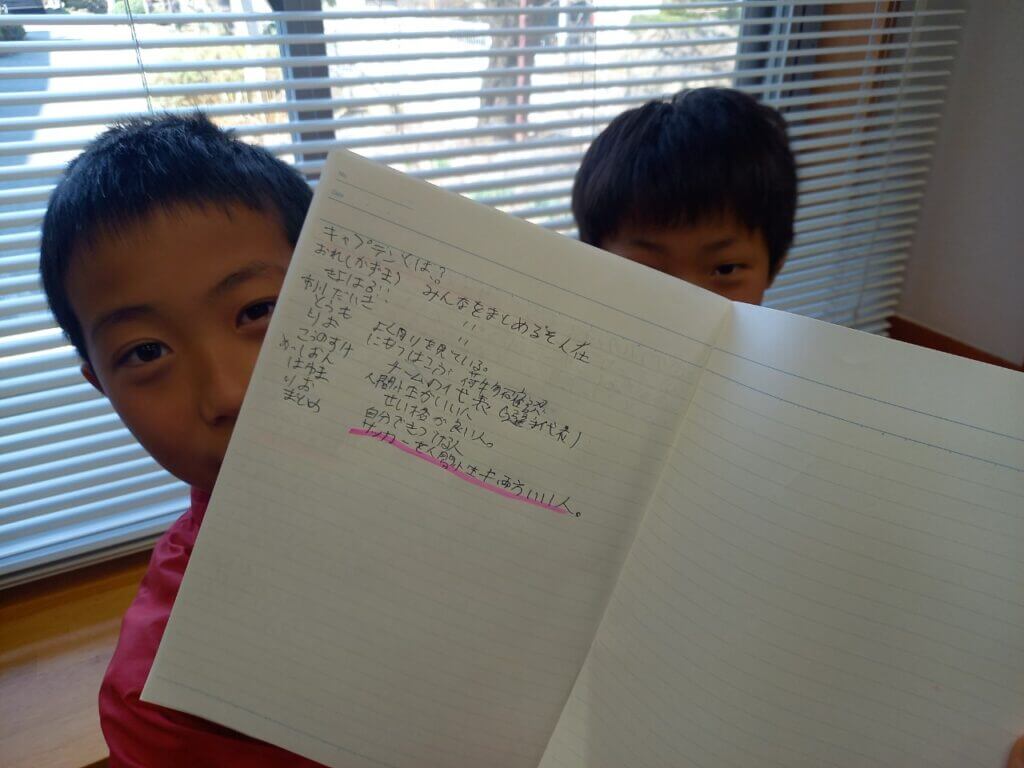 No.
Date
キャプテンとは?
おれ(かずま) みんなをまとめるそん在
きよはる 〃
市川だいき 〃
とうも よく周りを見ている。
りお にもつはこぶ、荷物の確認
こうのすけ チームの代表(選手代表)
めいしおん 人間性がいい人
はるま せい格が良い人。
りお 自分できつける人
まとめ サッカーも人間性も両方いい人。